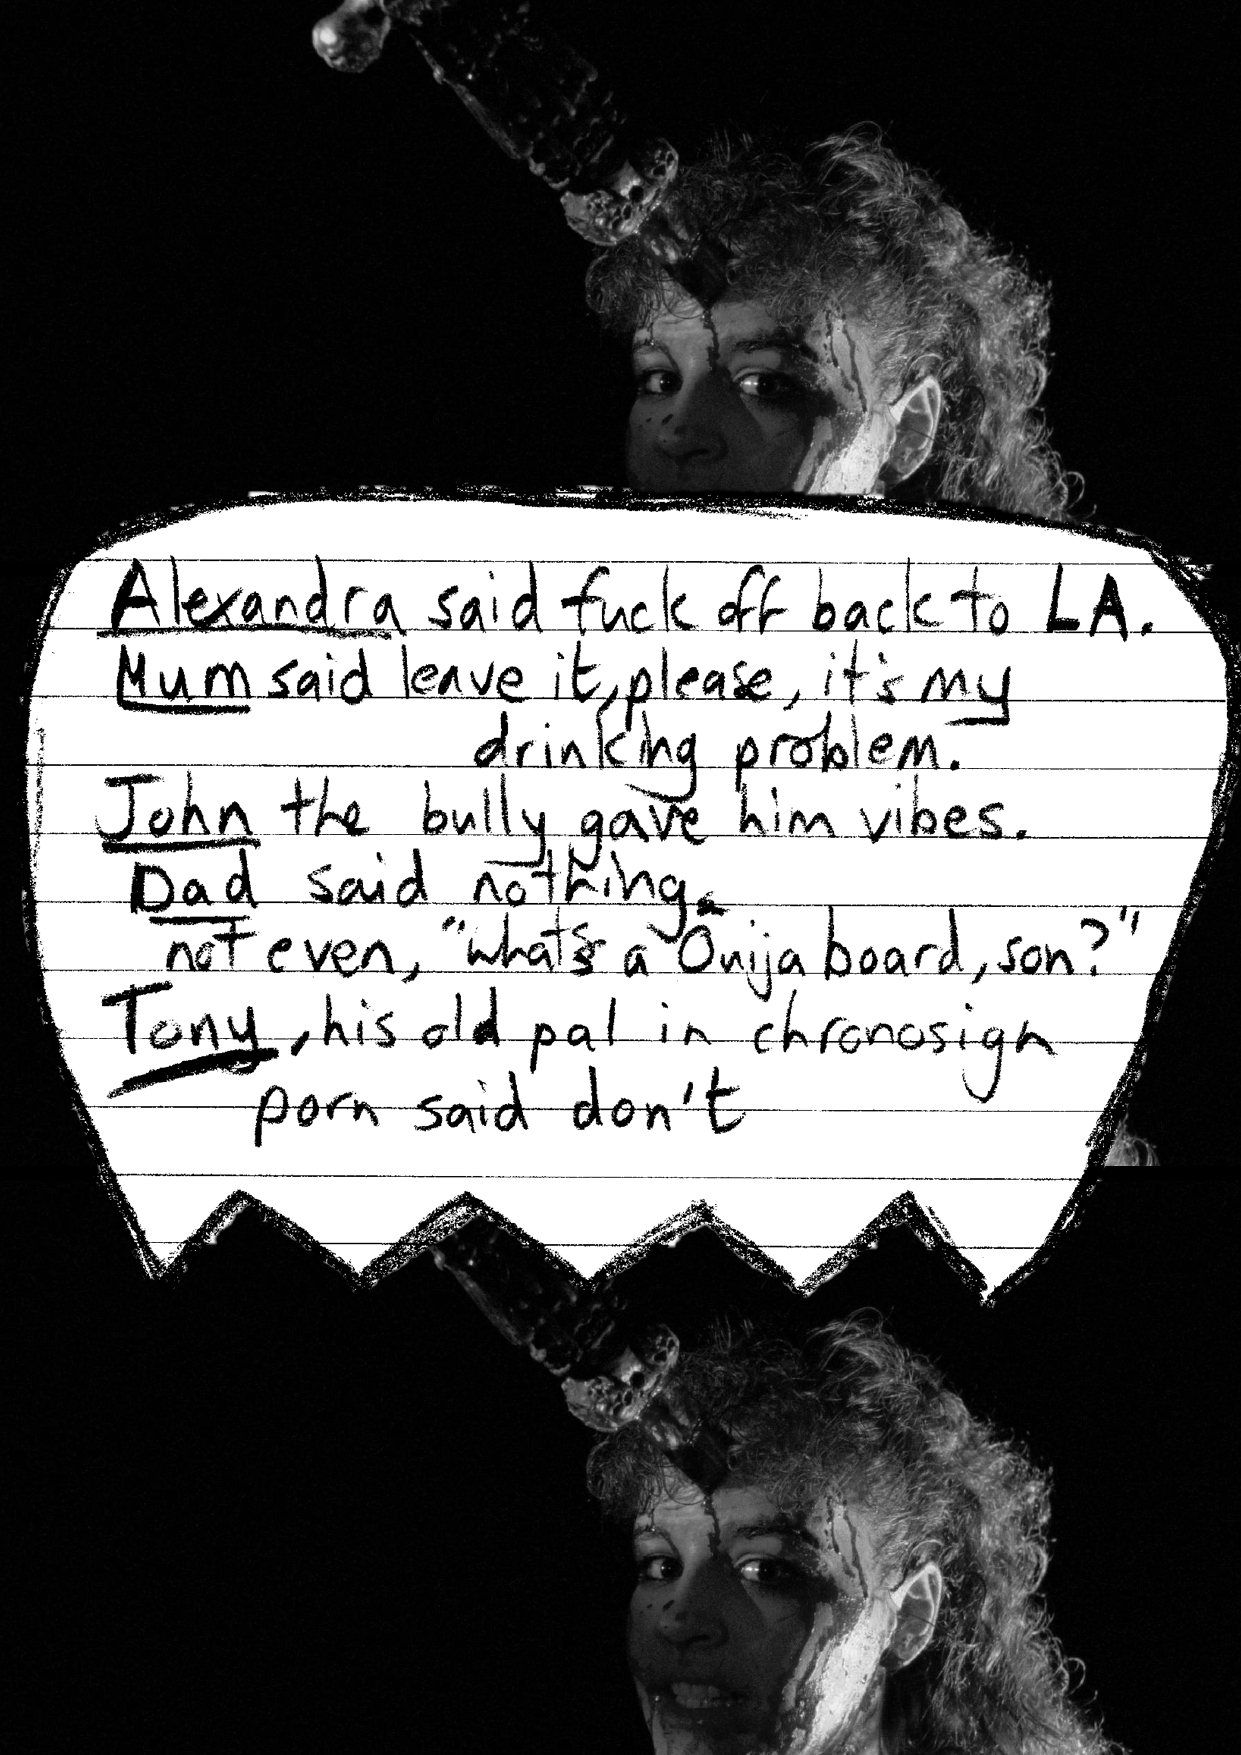 Alexandra said fuck off back to LA.
Mum said leave it, please, it's my
drinking problem.
John the bully gave him vibes.
Dad said nothing.
not even, "what's a Ouija board, son?"
Tony, his old pal in chronosign
porn said don't